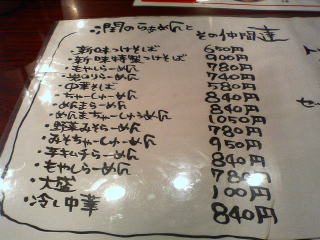 潤のらぁめんとその仲間達
・新味つけそば 650円
・新味特製つけそば 900円
・もやしらーめん 780円
・岩のりらーめん 740円
・中華そば 580円
・ちゃーしゅーめん 840円
・めんまらーめん 840円
・めんまちゃーしゅうめん 1050円
・野菜みそらーめん 780円
・みそちゃーしゅーめん 950円
・辛キムチらーめん 840円
・もやしらーめん 780円
・大盛 100円
・冷し中華 840円